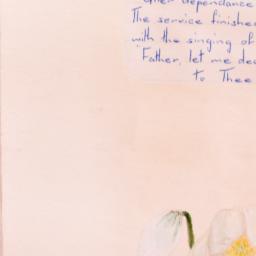 after dependance
The service finishe
with the singing of
"Father, let me de
to Thee